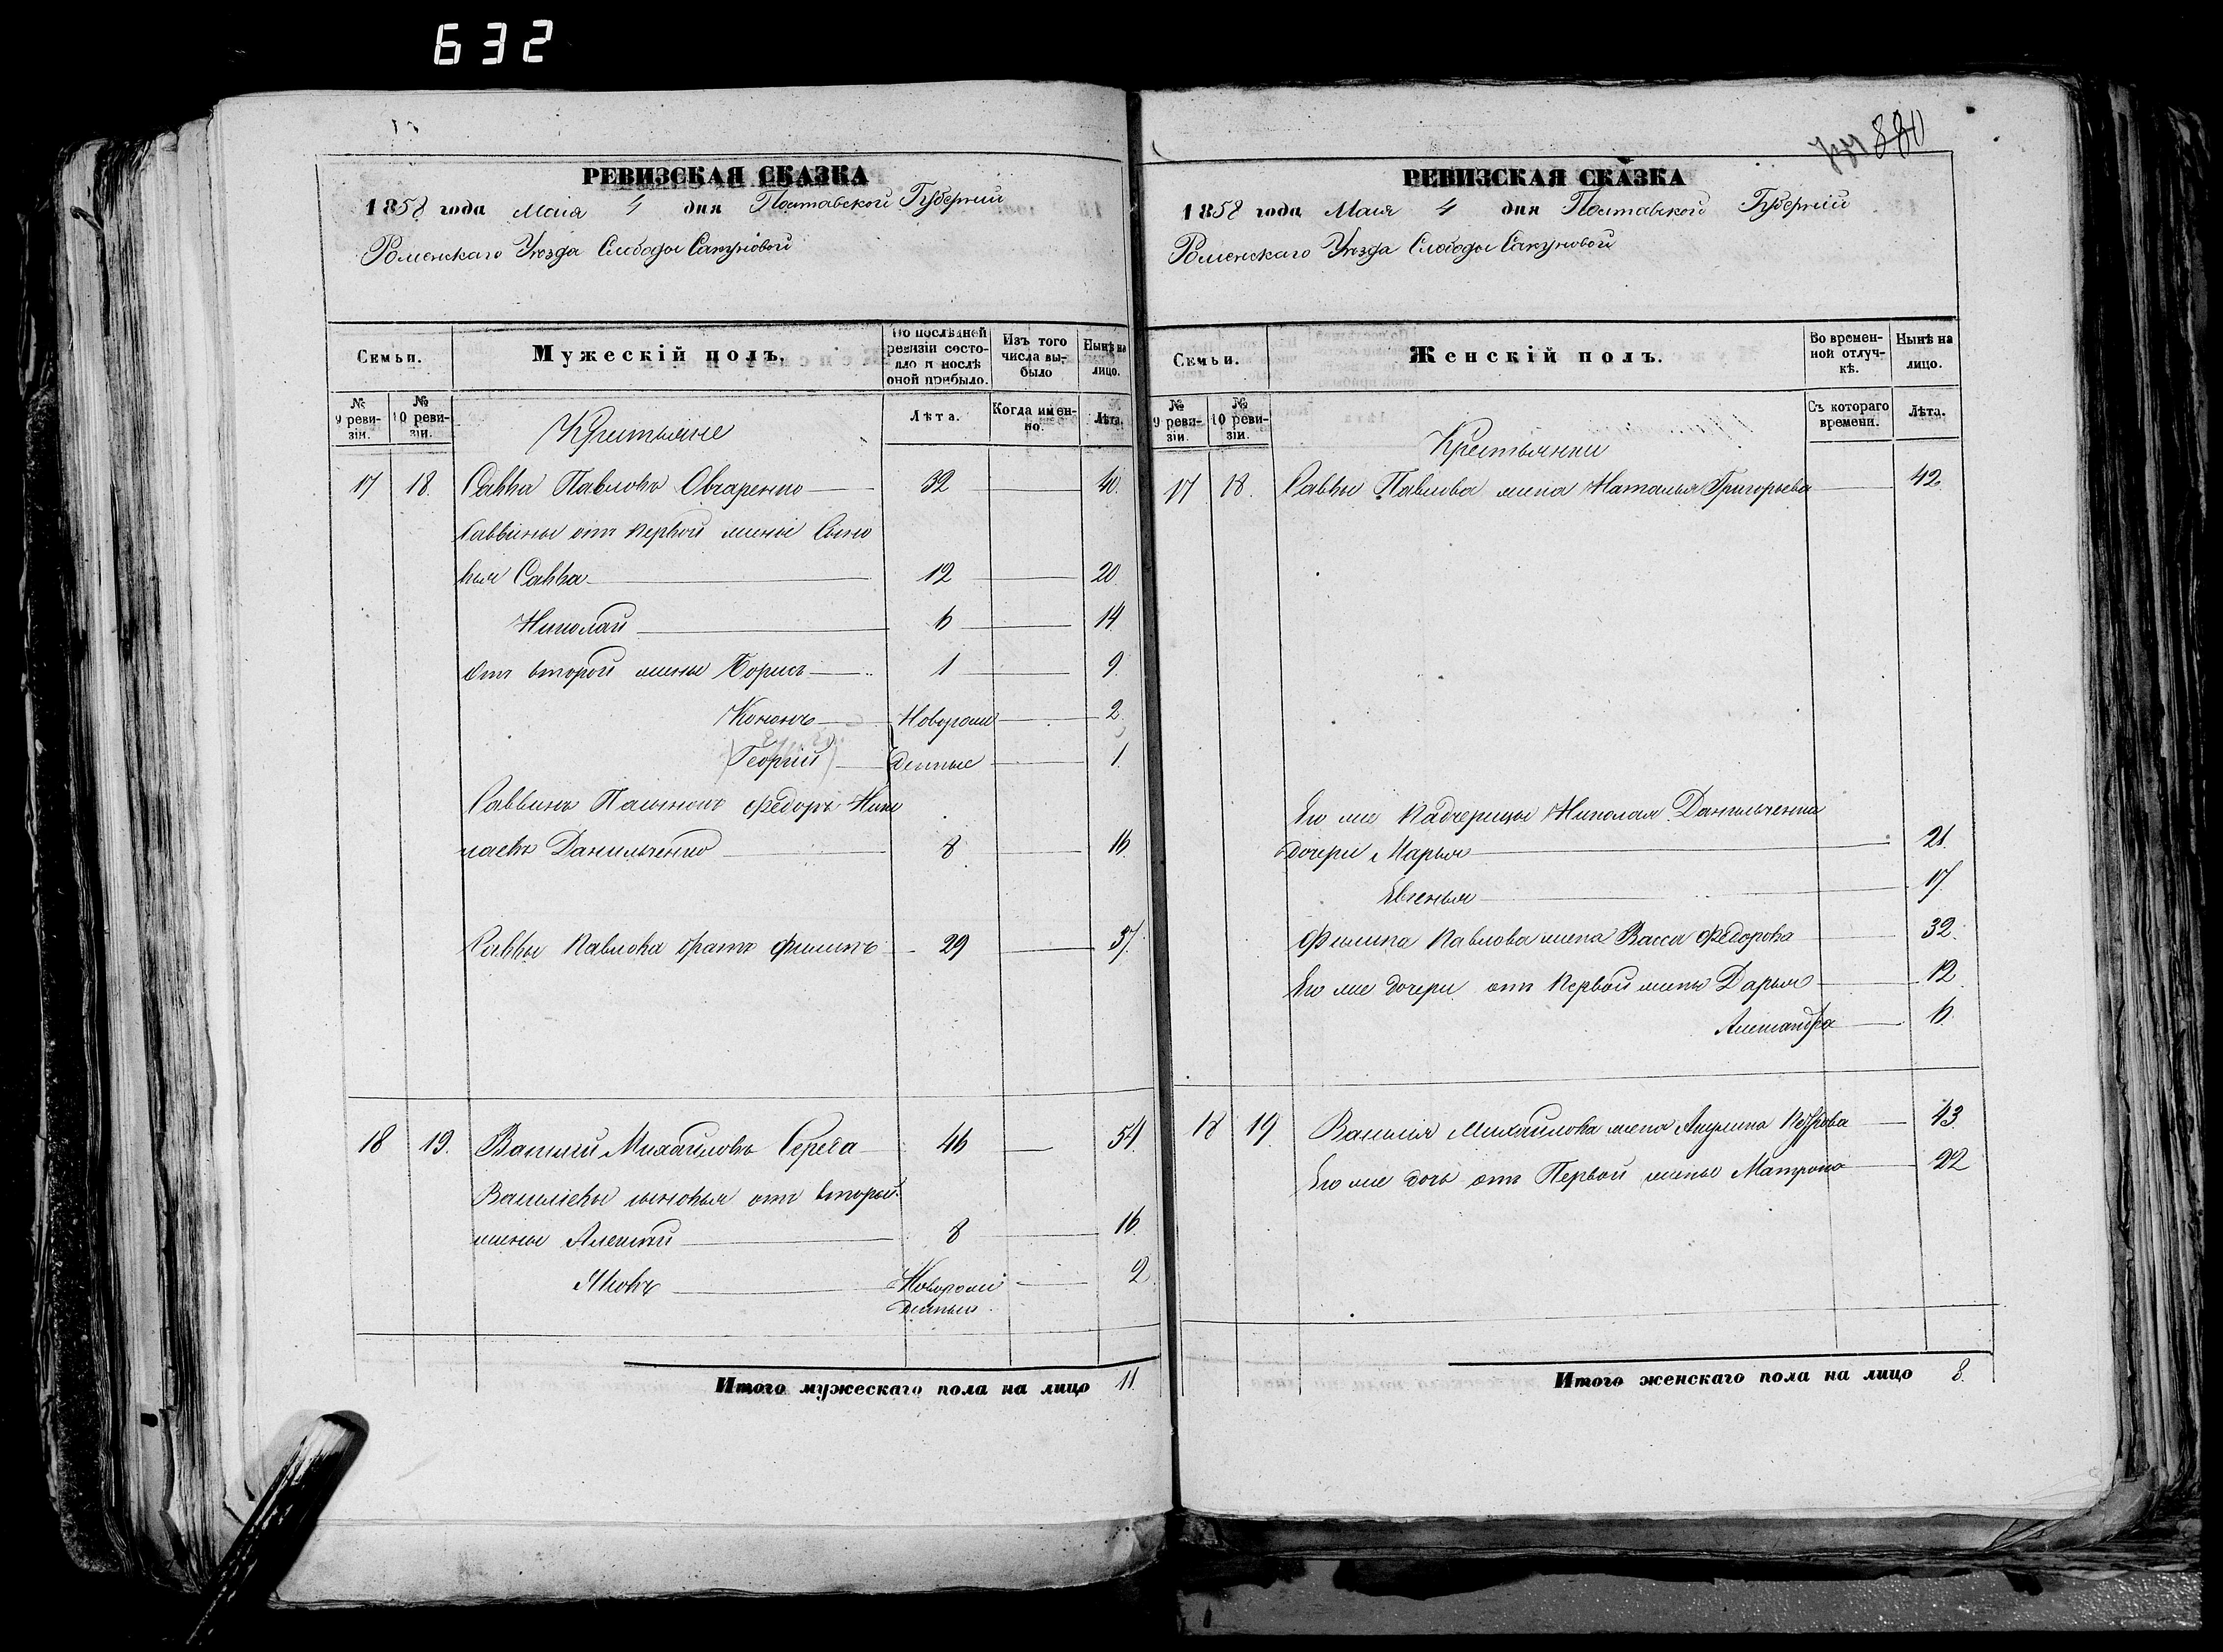 632
РЕВИЗСКАЯ СКАЗКА
1858 года Маія 4 дня Полтавской Губерніи
Роменскаго Уѣзда Слободы Сакуновой
Семьи.
Мужескій полъ.
По послѣдней ревизіи состояло и послѣ оной прибыло.
Изъ того числа выбыло
Нынѣ на лицо.
№ 9 ревизіи.
№ 10 ревизіи.
Лѣта.
Когда именно.
Лѣта.
Крестьяне
17 18. Савва Павловъ Овчаренко 32 40.
Саввины отъ первой жены Сыно
вья Савва 12 20
Николай 6 14
Отъ второй жены Борисъ 1 9.
Кононъ Аоворож 2.
Георгій денные 1.
Саввинъ Пасынокъ Федоръ Нико
лаевъ Данильченко 8 16.
Саввы Павлова братъ Филипъ 29 37.
18 19. Василій Михайловъ Середа 46 54
Василіевы сыновья отъ второй
жены Алексѣй 8 16.
Яковъ Новорож 2
денный.
Итого мужескаго пола на лицо 11.
880
РЕВИЗСКАЯ СКАЗКА
1858 года Маія 4 дня Полтавской Губерніи
Роменскаго Уѣзда Слободы Сакуновой
Семьи.
Женскій полъ.
Во временной отлучкѣ.
Нынѣ на лицо.
№ 9 ревизіи.
№ 10 ревизіи.
Съ котораго времени.
Лѣта.
Крестьянки
17 18. Саввы Павлова жена Наталья Григорьева 42
Его же Падчерицы Николая Данильченка
дочери Марья 21.
Евгенья 17
Филипа Павлова жена Васса Федорова 32.
Его же дочери отъ Первой жены Дарья 12.
Александра 6.
18 19. Василія Михайлова жена Акулина 43.
Его же дочь отъ Первой жены Матрона 22
Итого женскаго пола на лицо 8.